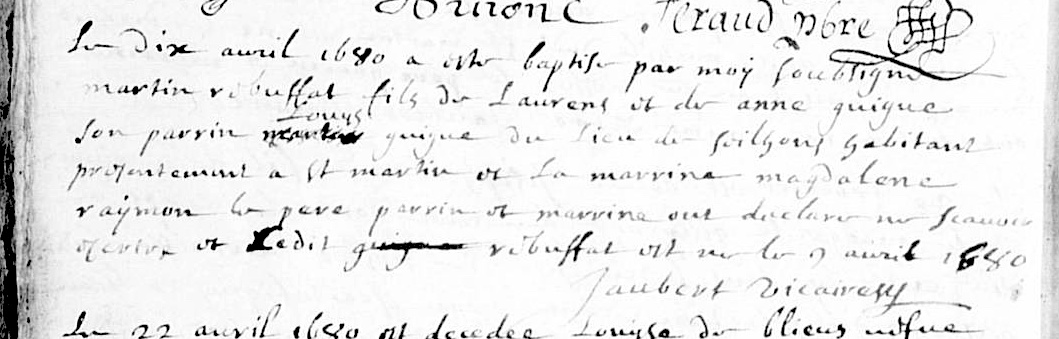 feraud pbre
Le Dix avril 1680 a este baptise par moy soubsigne
martin rebuffat fils de Laurens et de anne guigue
Louys
son parrin martin guigue du lieu de seilhons habitant
presentement a st martin et La marrine magdalene
raymon le pere parrin et marrine ont declare ne scavoir
escrire et Ledit guigue rebuffat est ne le 9 avril 1680
Jaubert vicaire
Le 22 avril 1680 est decedee Louysse de blieus